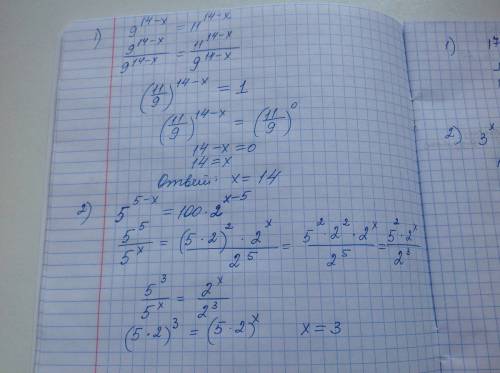 1) 9^{14-x} = 11^{14-x}
\frac{9^{14-x}}{9^{14-x}} = \frac{11^{14-x}}{9^{14-x}}
(\frac{11}{9})^{14-x} = 1
(\frac{11}{9})^{14-x} = (\frac{11}{9})^0
14-x=0
14=x
Ответ: x=14
2) 5^{5-x} = 100·2^{x-5}
\frac{5^5}{5^x} = \frac{(5·2)^2·2^x}{2^5} = \frac{5^2·2^2·2^x}{2^5} = \frac{5^2·2^x}{2^3}
\frac{5^3}{5^x} = \frac{2^x}{2^3}
(5·2)^3 = (5·2)^x x=3
1) 17
2) 3^x